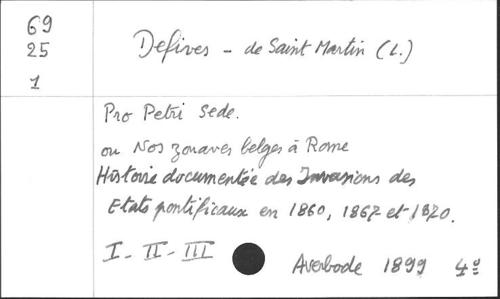 69
25
1
Defives - de Saint Martin (L.)
Pro Petri Sede.
ou Nos zouaves belges à Rome
Histoire documentée des Invasions des
Etats pontificaux en 1860, 1867 et 1870.
I - II - III
Averbode 1899 4º